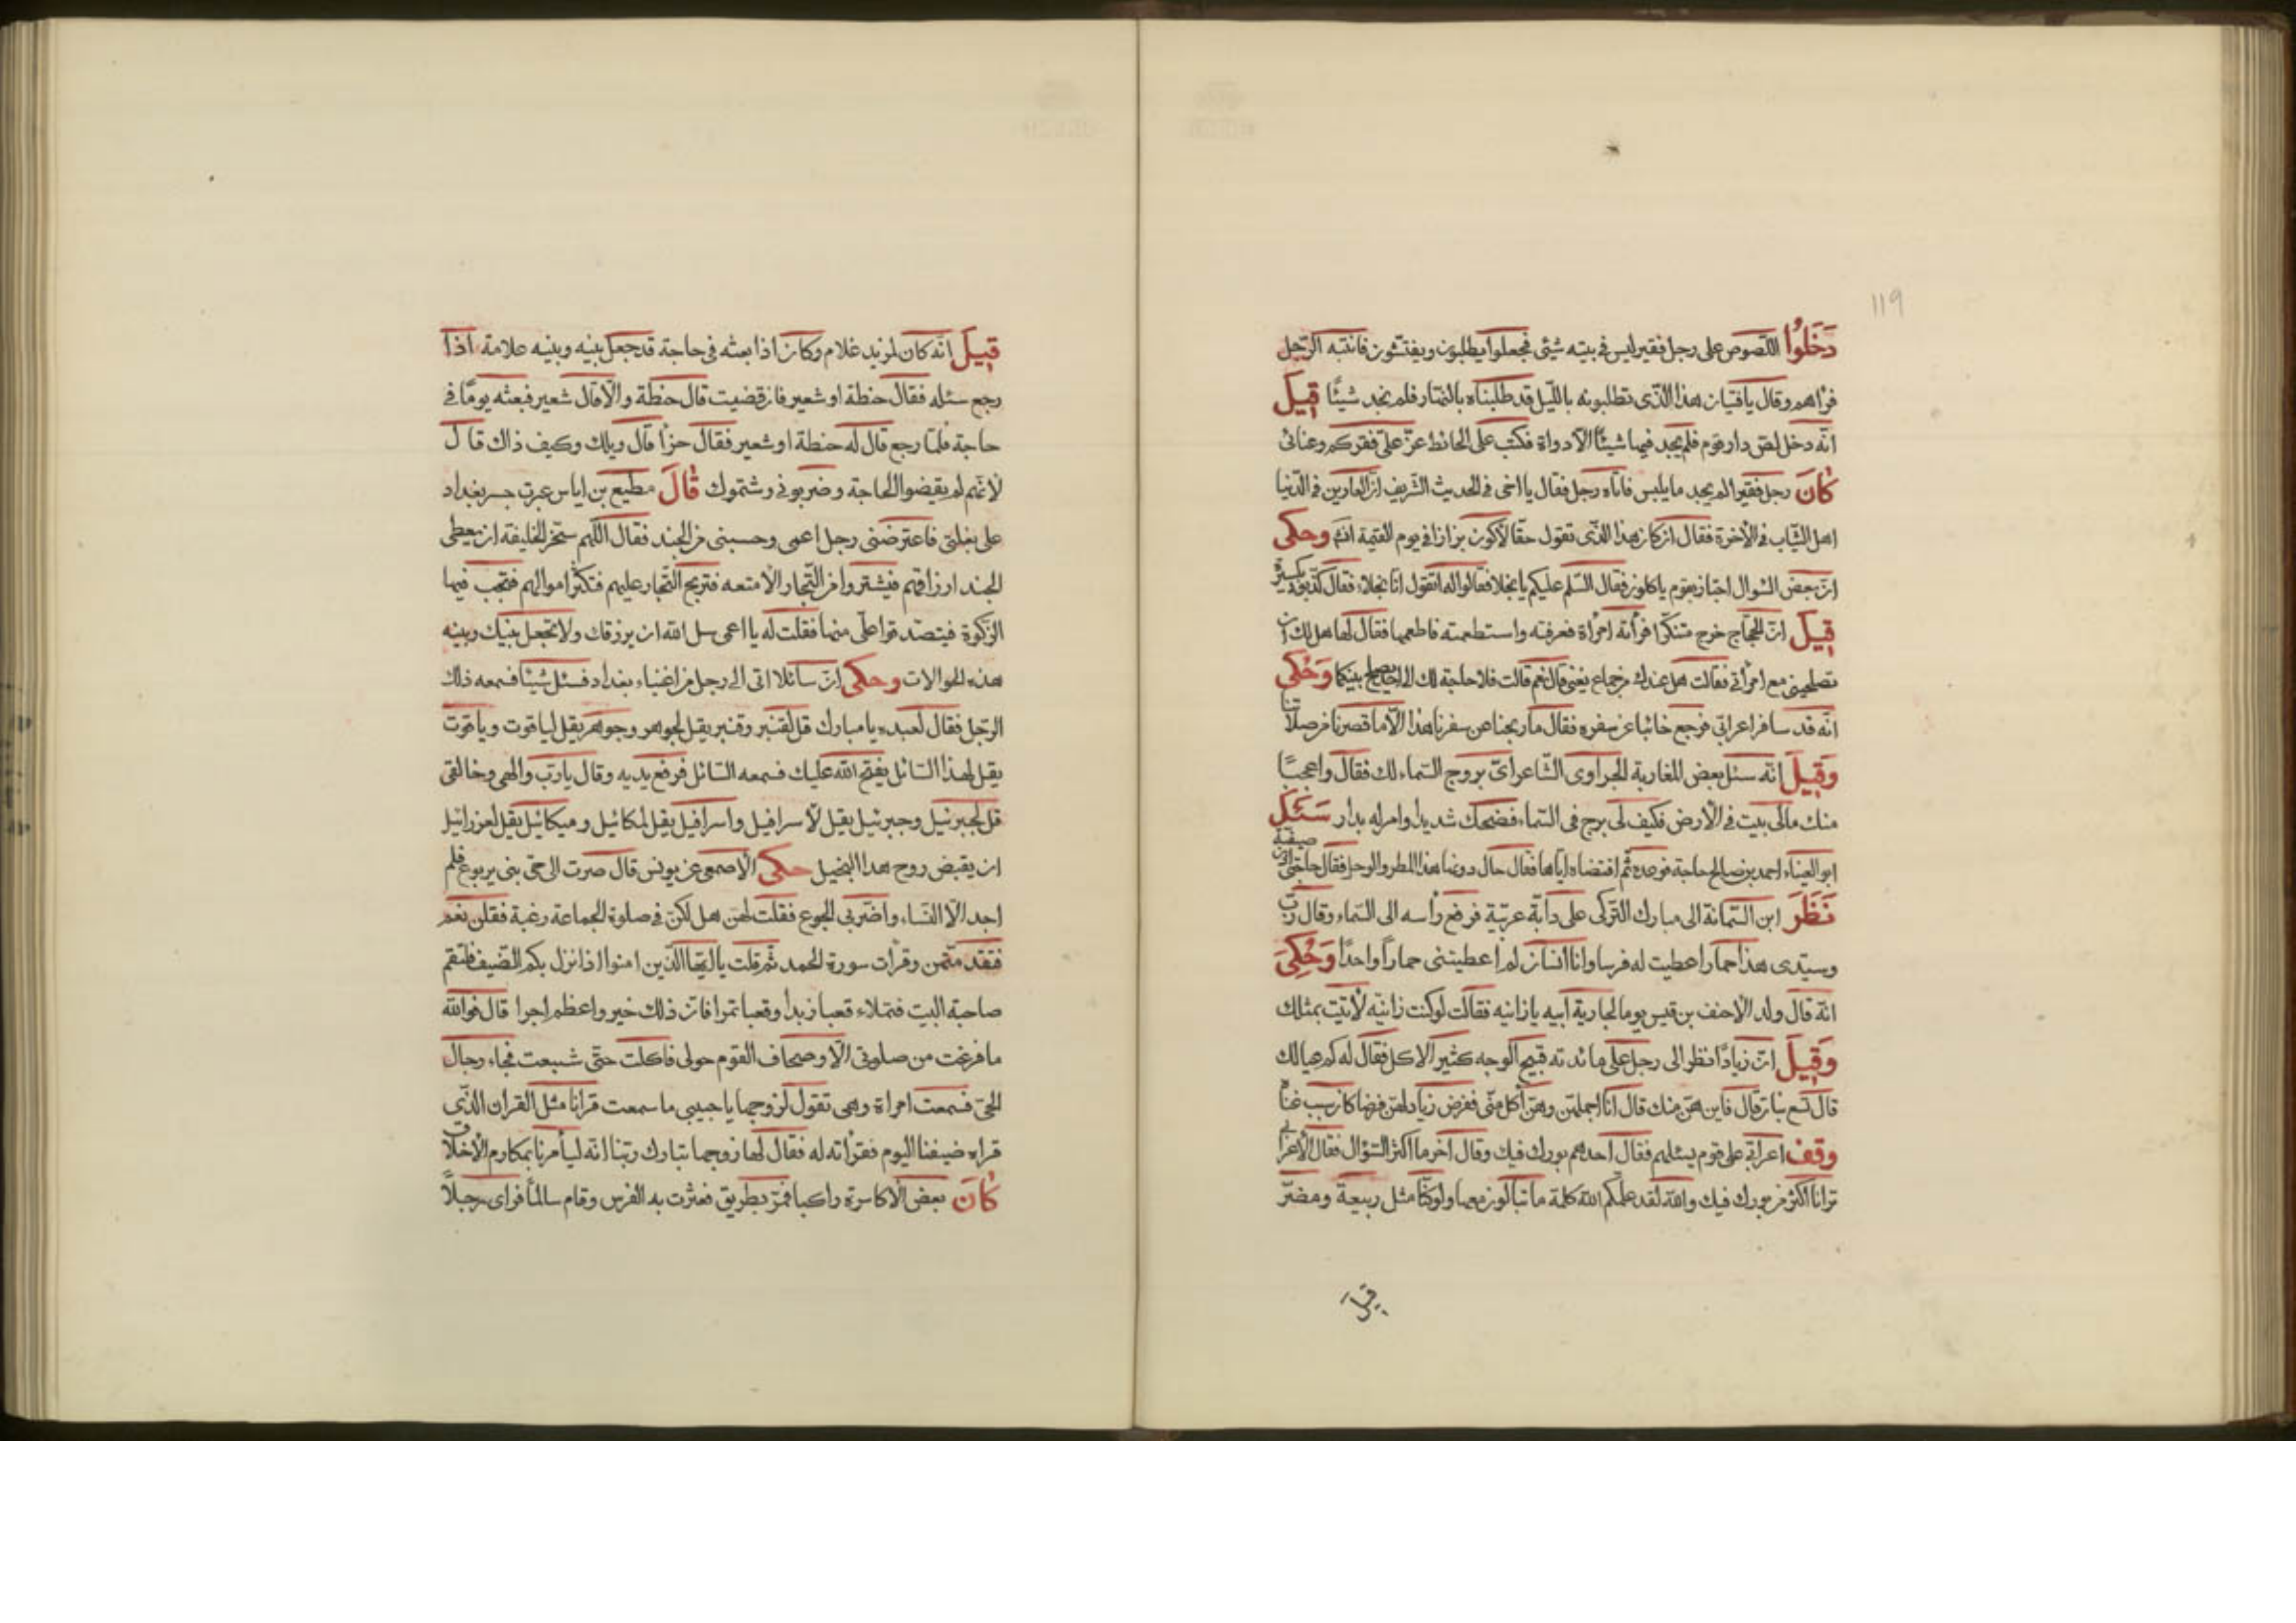 119
دَخَلُوا اللّصوص على رجل فقير ليس فى بيته شيئى فجعلوا يطلبون ويفتشون فانتبه الرّجل
فراهم وقال يا فتيان هذا الّذى تطلبونه باللّيل قد طلبناه بالنّهار فلم نجد شيئًا قيلَ
انّه دخل لص دار قوم فلم يجد فيها شيئًا الّا دواة فكتب على الحائط عزّ علىّ فقركم وغنائى
كانَ رجل فقيرا لم يجد ما يلبس فاتاه رجل فقال يا اخى فى الحديث الشّريف انّ العارين فى الدّنيا
اهل الثّياب فى الآخرة فقال ان كان هذا الّذى تقول حقّا لاكون بزازا فى يوم القيمة انتهى وحكى
انّ بعض السّوال اجتاز بقوم ياكلون فقال السّلم عليكم يا بخلا فقالوا له اتقول انّا بخلاء فقال كذّبونى بكسرة
قيلَ انّ الحجّاج خرج متنكّرا فرأته امرأة فعرفته واستطعمته فاطعمها فقال لها هل لك ان
تصلحينى مع امرأتى فقالت هل عندك من جماع يغنى قال نعم قالت فلا حاجة لك الى من يصلح بينكما وَحُكى
انّه قد سافر اعرابى فرجع خائبا عن سفره فقال ما ربحنا من سفرنا هذا الّا ما قصرنا من صلاتنا
وَقيلَ انّه سئل بعض المغاربة الجراوى الشّاعر اىّ بروج السّماء لك فقال واعجبًا
منك مالى بيت فى الارض فكيف لى برج فى السّماء فضحك شديدا وامر له بدار سَئَلَ
ابو العيناء احمد بن صالح حاجة فوعده ثمّ اقتضاه ايّاها فقال حال دونها هذا المطر والوحل فقال حاجتى اذن صيفيّة
نَظَرَ ابن السّمانة الى مبارك التّركى على دابّة عربيّة فرفع رأسه الى السّماء وقال ربّ
وسيّدى هذا حمار اعطيت له فرسا وانا انسان لم اعطيتنى حمارًا واحدًا وَحُكِىَ
انّه قال ولد الاحنف بن قيس يوما لجارية ابيه يا زانيه فقالت لو كنت زانيّه لاتيت بمثلك
وَقيلَ انّ زيادًا نظر الى رجل على مائدته قبيح الوجه كثير الاكل فقال له كم عيالك
قال تسع بنات قال فاين هنّ منك قال انا اجملهنّ وهنّ آكل منّى ففرض زياد لهنّ فرضا كان سبب غناه
وقف اعرابى على قوم يسئلهم فقال احدهم بورك فيك وقال آخر ما اكثر السّؤال فقال الاعرابى
ترانا اكثر من بورك فيك والله لقد علّمكم الله كلمة ما تبالون معها ولو كنّا مثل ربيعة ومضرّ
قيلَ
قيلَ انّه كان لمزيد غلام وكان اذا بعثه فى حاجة قد جعل بينه وبينه علامة اذا
رجع سئله فقال حنطة او شعير فان قضيت قال حنطة والّا قال شعير فبعثه يومًا فى
حاجة فلمّا رجع قال له حنطة او شعير فقال خرًا قال ويلك وكيف ذاك قال
لانّهم لم يقيضوا الحاجة وضربونى وشتموك قالَ مطيع بن اياس عبرت جسر بغداد
على بغلتى فاعترضنى رجل اعمى وحسبنى من الجند فقال اللّهم سخّر الخليفة ان يعطى
الجند ارزاقهم فيشتروا من التّجار الامتعه فتربح التّجار عليهم فتكثر اموالهم فتجب فيها
الزّكوة فيتصدّقوا علّى منها فقلت له يا اعمى سل الله ان يرزقك ولا تجعل بينك وبينه
هذه الحوالات وحكى انّ سائلا اتى الى رجل من اغنياء بغداد فسئل شيئًا فسمعه ذلك
الرّجل فقال لعبده يا مبارك قل لقنبر وقنبر يقل لجوهر وجوهر يقل لياقوت وياقوت
يقل لهذا السّائل يفتح الله عليك فسمعه السّائل فرفع يديه وقال يا ربّ والهى وخالقى
قل لجبرئيل وجبرئيل يقيل لاسرافيل واسرافيل يقل لمكائيل وميكائيل يقل لعزرائيل
ان يقبض روح هذا البخيل حكى الاصمعى عن يونس قال صرت الى حىّ بنى يربوع فلم
اجد الّا النّساء واضرّ بى الجوع فقلت لهن هل لكنّ فى صلوة الجماعة رغبة فقلن نعم
فتقدّمتهن وقرأت سورة الحمد ثمّ قلت يا ايّها الّذين امنوا اذا نزل بكم الضّيف فلتقم
صاحبة البيت فتملاء قعبا زبدا وقعبا تمرا فانّ ذلك خير واعظم اجرا قال فوالله
ما فرغت من صلوتى الّا وصحاف القوم حولى فاكلت حتّى شبعت فجاء رجال
الحىّ فسمعت امراة وهى تقول لزوجها يا حبيبى ما سمعت قرانا مثل القران الّذى
قراه ضيفنا اليوم فقرأته له فقال لها زوجها تبارك ربّنا انّه ليأمرنا بمكارم الاخلاق
كانَ بعض الاكاسرة راكبا فمرّ بطريق فعثرت به الفرس وقام سالمًا فراى رجلًا